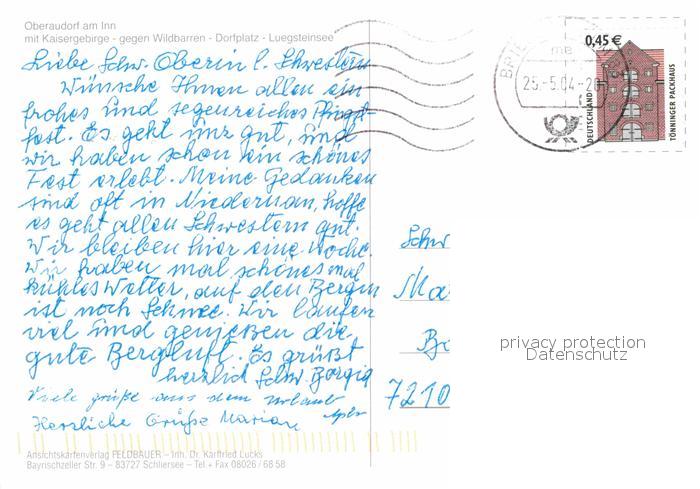 Oberaudorf am Inn
mit Kaisergebirge - gegen Wildbarren - Dorfplatz - Luegsteinsee
Liebe Schw. Oberin l. Schwestern
Wünsche Ihnen allen ein
frohes und segenreiches Pfingst-
fest. Es geht mir gut, und
wir haben schon ein schönes
Fest erlebt. Meine Gedanken
sind oft in Niedernau, hoffe
es geht allen Schwestern gut.
Wir bleiben hier eine Woche.
Wir haben mal schönes mal
kühles Wetter, auf den Bergen
ist noch Schnee. Wir laufen
viel und genießen die
gute Bergluft. Es grüßt
herzlich Schw. Borgia
Viele grüße aus dem Urlaub
Herzliche Grüße Marian
Ansichtskartenverlag FELDBAUER – Inh. Dr. Karlfried Lucks
Bayrischzeller Str. 9 – 83727 Schliersee – Tel + Fax 08026 / 68 58
BRIE
me
25.-5.04-20
0,45 €
DEUTSCHLAND
TÖNNINGER PACKHAUS
Schw
Ma
7210
privacy protection
Datenschutz